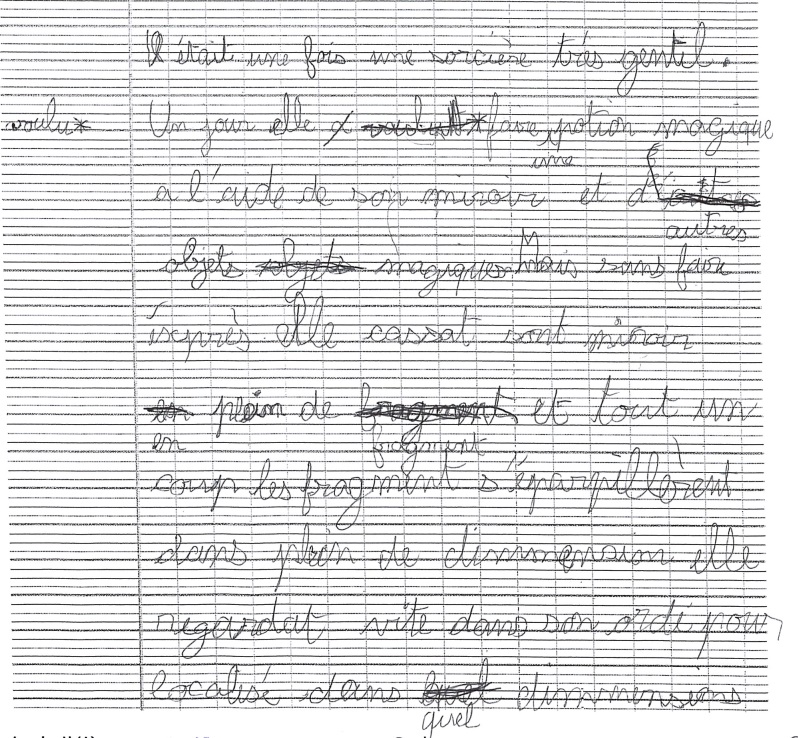 Il était une fois une sorcière très gentil.
voulu* Un jour elle * faire une potion magique
a l'aide de son miroir et d'autres
objets magiques Mais sans faire
éxprès elle cassat sont miroir
en plein de fragment et tout un
coup les fragment s'éparpillèrent
dans plein de dimmension elle
regardat vite dans son ordi pour
localisé dans quel dimmensions